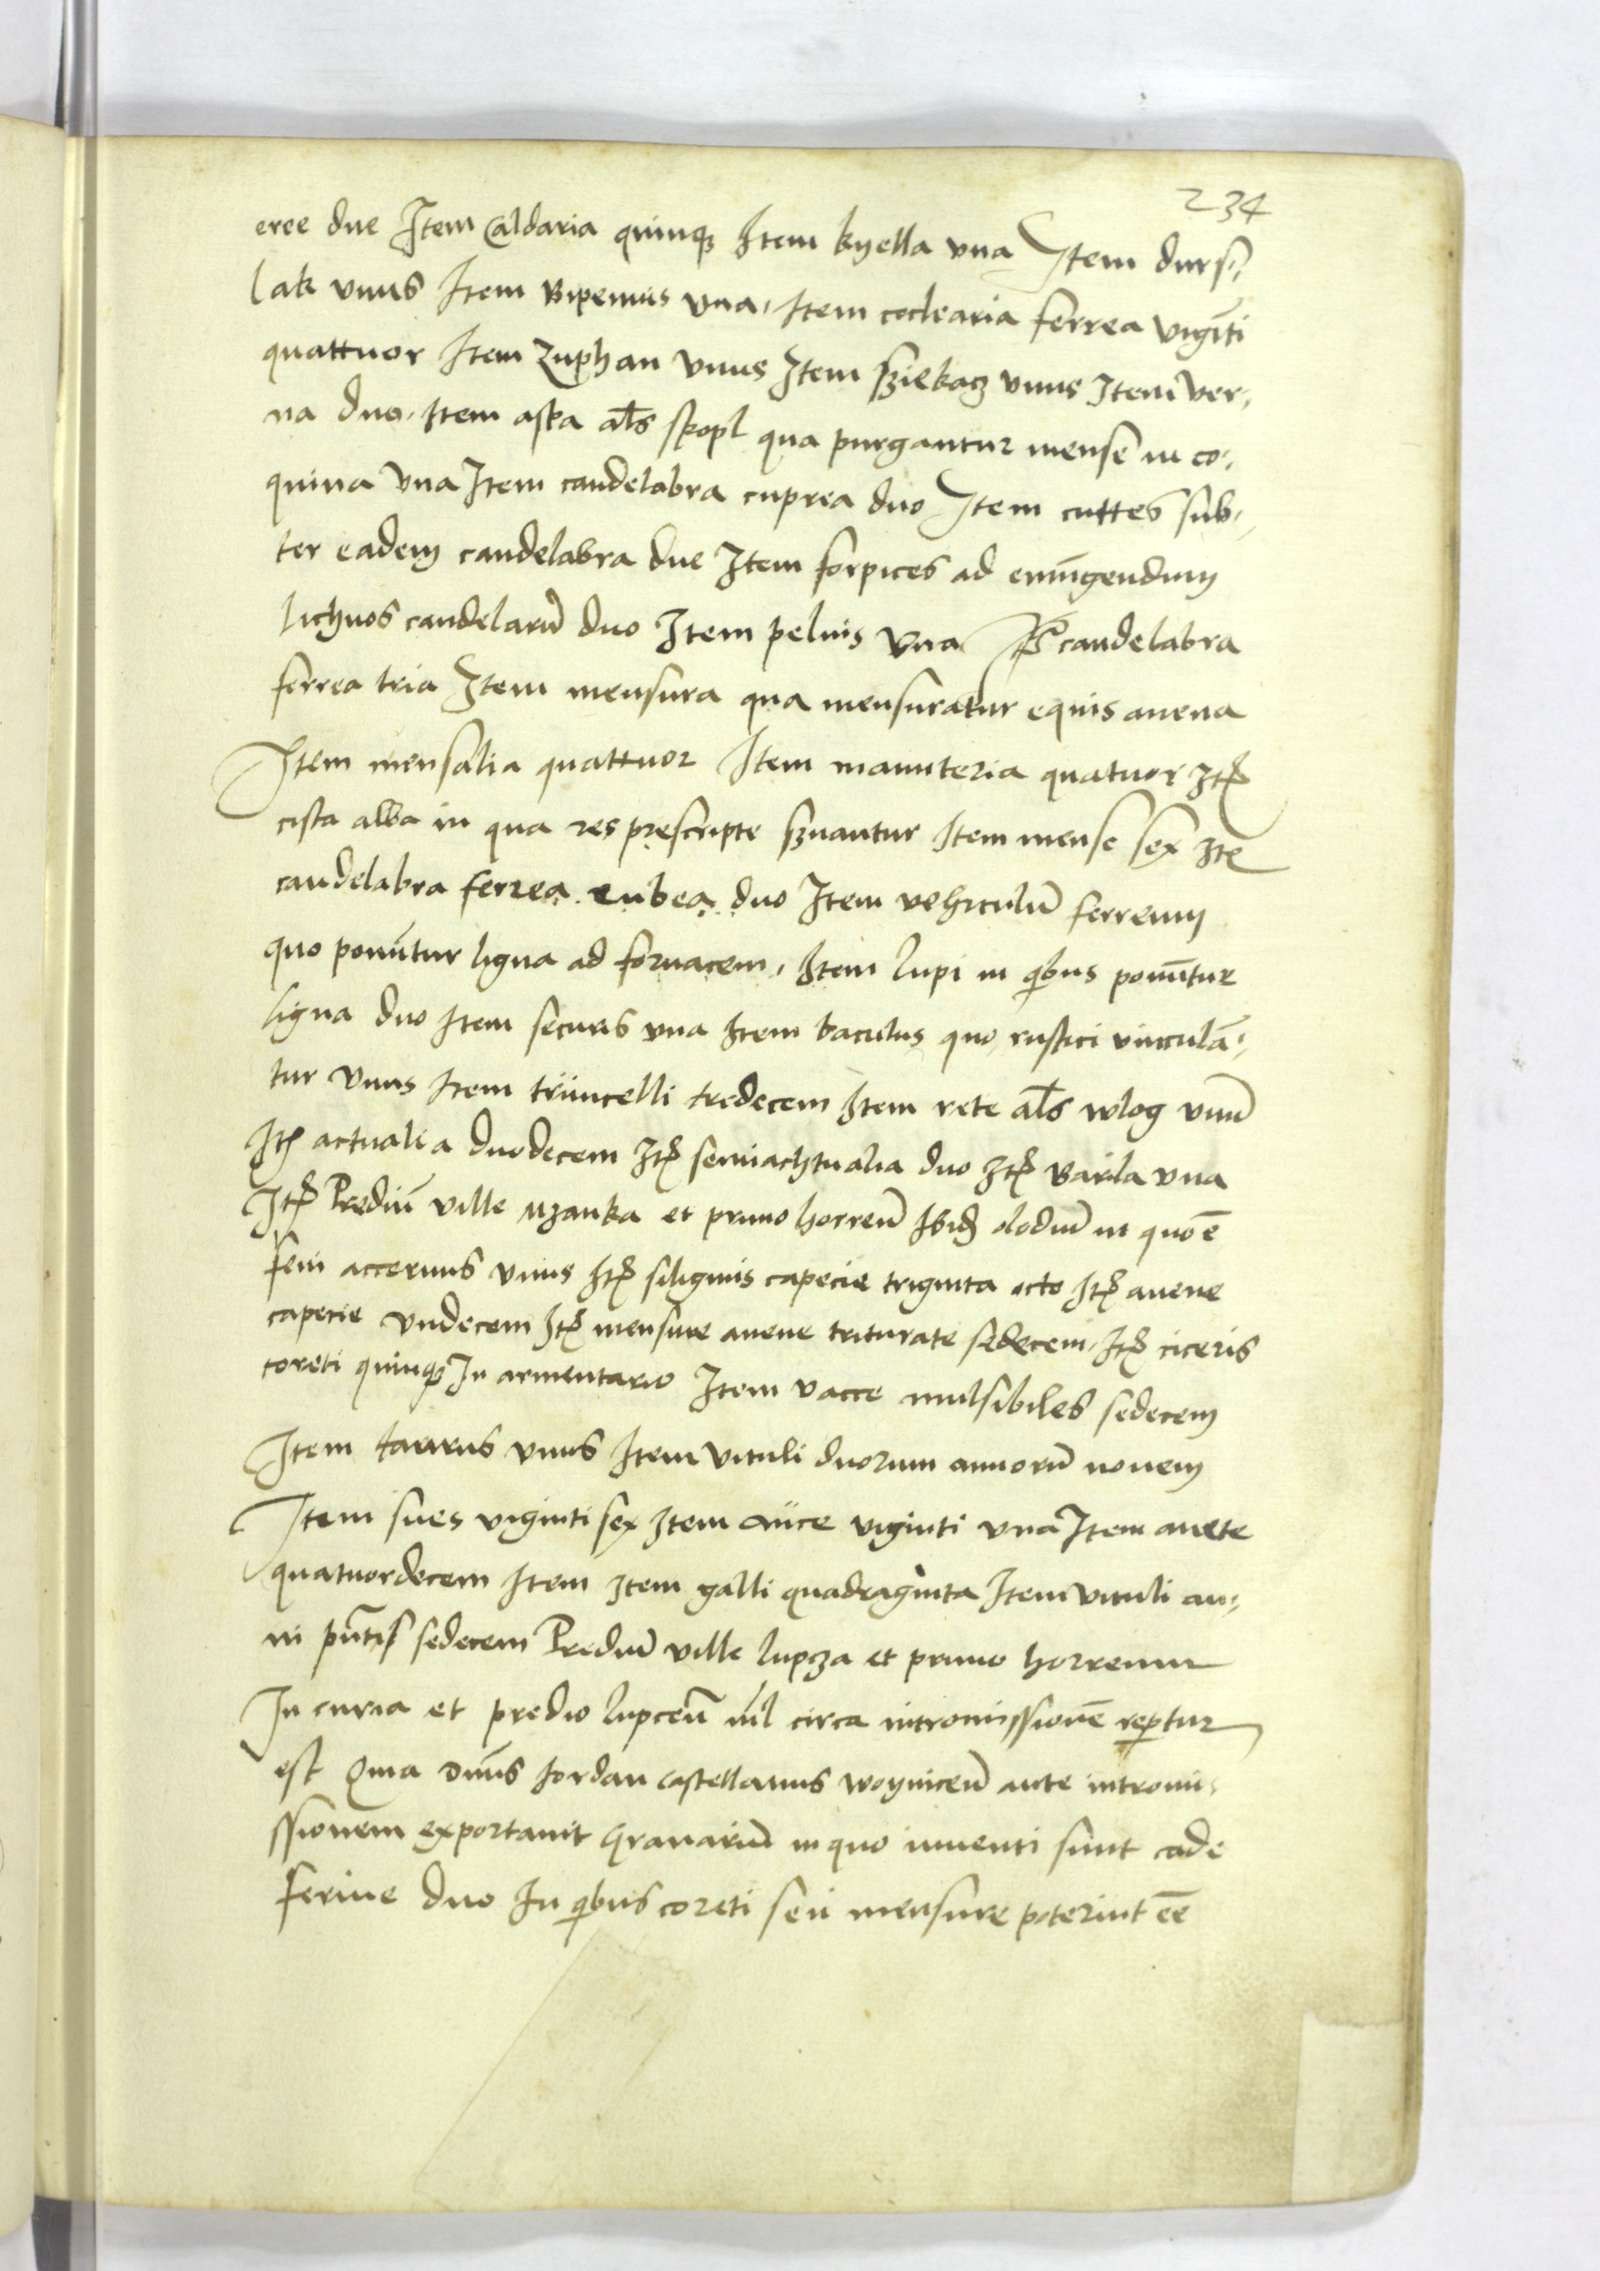 234
eree due Item Caldaria quinqꝫ Item kyella vna Item durs-
lak vnus Item Bipennis vna, Item coclearia ferrea vigīti
quattuor Item Zuphan vnus Item sziekacz vnus Item ver-
na duo, Item aska al̄s skopl qua purgantur mense in co-
quina vna Item candelabra cuprea duo Item cuttes sub-
ter eadem candelabra due Item forpices ad emūgendum
lichnos candelarū duo Item peluis vna candelabra
ferrea tria Item mensura qua mensuratur equis auena
Item mensalia quattuor Item manuteria quatuor Itꝫ
cista alba in qua res prescripte seruantur Item mense sex Itꝫ
candelabra ferrea rubea duo Item vehiculū ferreum
quo ponūtur ligna ad fornacem, Item lupi in qibus ponūtur
ligna duo Item securis vna Item baculus quo rustici vinculā-
tur vnus Item trūncelli tredecem Item rete al̄s wlog vnū
Itꝫ actualia duodecem Itꝫ semiachtualia duo Itꝫ Barila vna
Itꝫ Prediū ville Mzanka et primo horreū Ibidꝫ olodiū in quo ē
feni accervus vnus Itꝫ siliginis capecie triginta octo Itꝫ auene
capecie vndecem Itꝫ mensure auene triturate sedecem, Itꝫ ciceris
coreti quinqꝫ In armentario Item vacce mulsibiles sedecem
Item taurus vnus Item vituli duorum annorū nouem
Item sues viginti sex Item auce viginti vna Item anete
quatuordecem Item Item galli quadraginta Item vituli an-
ni pn̄tis sedecem Prediū ville lupcza et primo horreum
In curia et predio lupceñ nil circa intromissionē repertur
est Quia dn̄us Iordan castellanus woyniceñ ante intromi-
ssionem exportauit Granariū in quo inuenti sunt cade
ferine duo In qibus coreti seu mensure poterint ēē